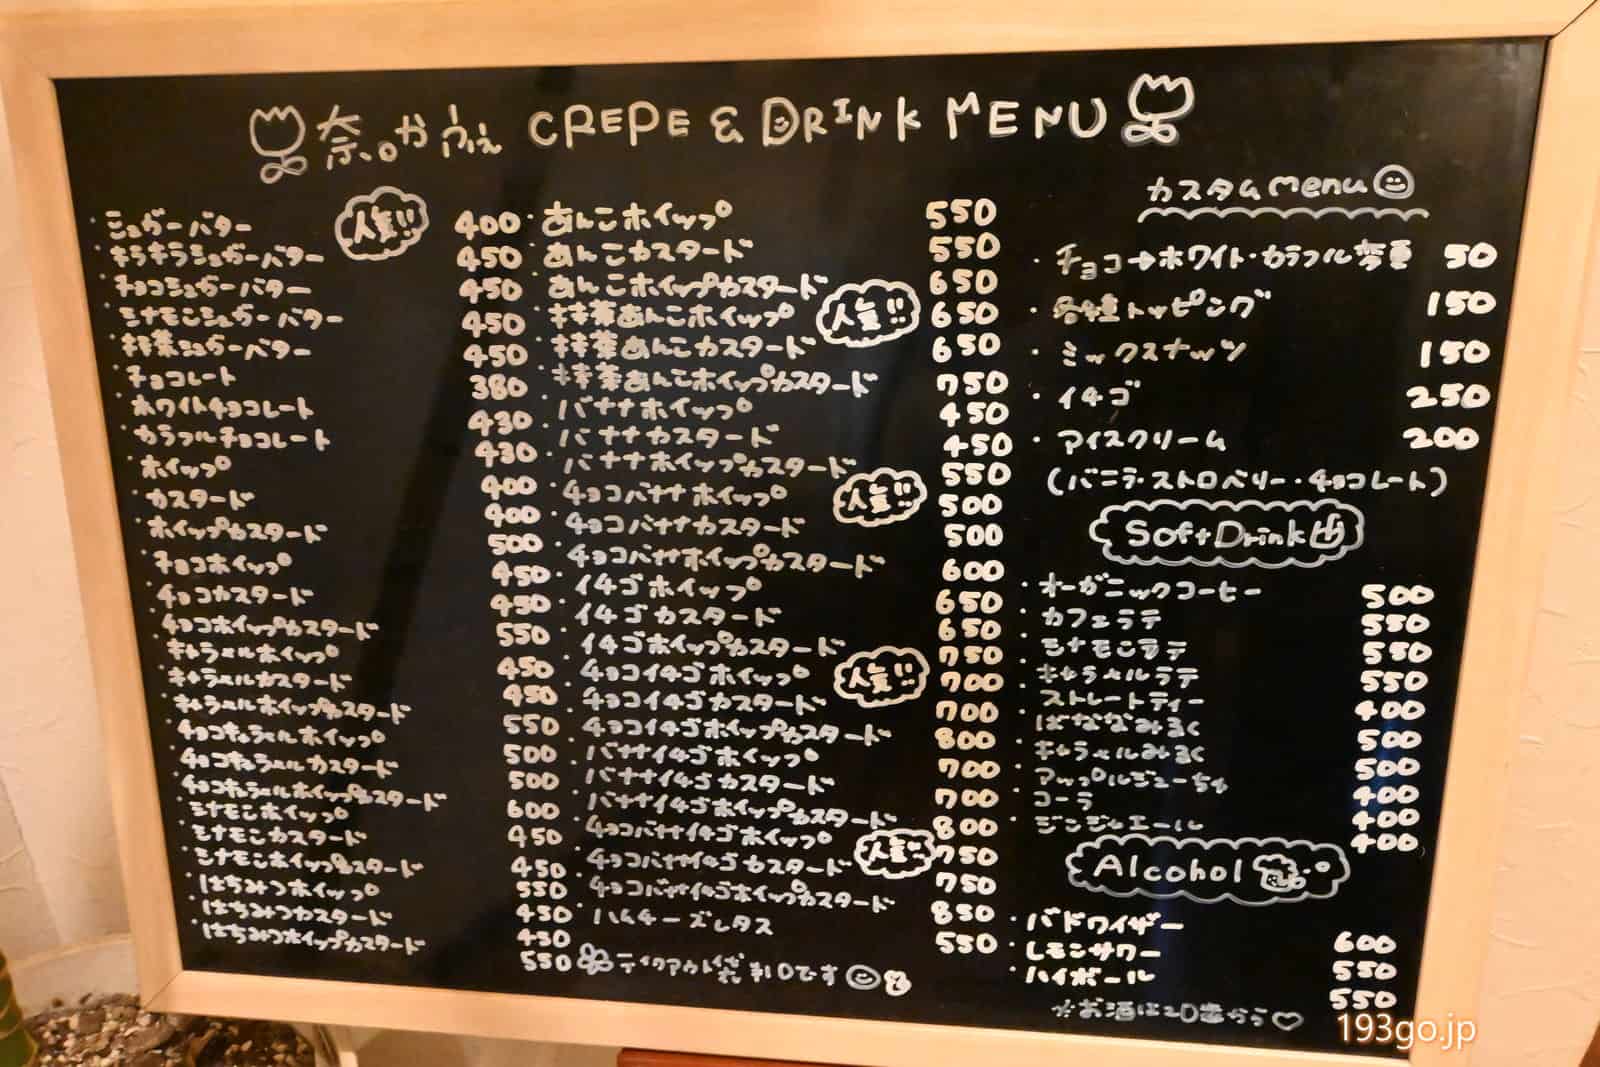 奈。かふぇ CREPE & DRINK MENU
・シュガーバター 人気!! 400
・キラキラシュガーバター 450
・チョコシュガーバター 450
・シナモンシュガーバター 450
・抹茶シュガーバター 450
・チョコレート 380
・ホワイトチョコレート 430
・カラフルチョコレート 430
・ホイップ 400
・カスタード 400
・ホイップカスタード 500
・チョコホイップ 450
・チョコカスタード 450
・チョコホイップカスタード 550
・キャラメルホイップ 450
・キャラメルカスタード 450
・キャラメルホイップカスタード 550
・チョコキャラメルホイップ 500
・チョコキャラメルカスタード 500
・チョコキャラメルホイップカスタード 600
・シナモンホイップ 450
・シナモンカスタード 450
・シナモンホイップカスタード 550
・はちみつホイップ 450
・はちみつカスタード 450
・はちみつホイップカスタード 550
・あんこホイップ 550
・あんこカスタード 550
・あんこホイップカスタード 650
・抹茶あんこホイップ 人気!! 650
・抹茶あんこカスタード 650
・抹茶あんこホイップカスタード 750
・バナナホイップ 450
・バナナカスタード 450
・バナナホイップカスタード 550
・チョコバナナホイップ 人気!! 500
・チョコバナナカスタード 500
・チョコバナナホイップカスタード 600
・イチゴホイップ 650
・イチゴカスタード 650
・イチゴホイップカスタード 750
・チョコイチゴホイップ 人気!! 700
・チョコイチゴカスタード 700
・チョコイチゴホイップカスタード 800
・バナナイチゴホイップ 700
・バナナイチゴカスタード 700
・バナナイチゴホイップカスタード 800
・チョコバナナイチゴホイップ 人気!! 750
・チョコバナナイチゴカスタード 750
・チョコバナナイチゴホイップカスタード 850
・ハムチーズレタス 550
テイクアウトイ
です
カスタムmenu
・チョコ→ホワイト・カラフル変更 50
・各種トッピング 150
・ミックスナッツ 150
・イチゴ 250
・アイスクリーム 200
(バニラ・ストロベリー・チョコレート)
Soft Drink
・オーガニックコーヒー 500
・カフェラテ 550
・シナモンラテ 550
・キャラメルラテ 550
・ストレートティー 400
・ばななみるく 500
・キャラメルみるく 500
・アップルジューちゅ 400
・コーラ 400
・ジンジャエール 400
Alcohol
・バドワイザー 600
・レモンサワー 550
・ハイボール 550
☆お酒は20歳から♡
193go.jp